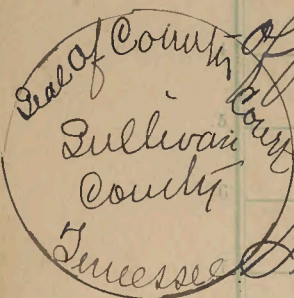 Seal Of County Court
Sullivan
County
Tennessee
Of
5
6